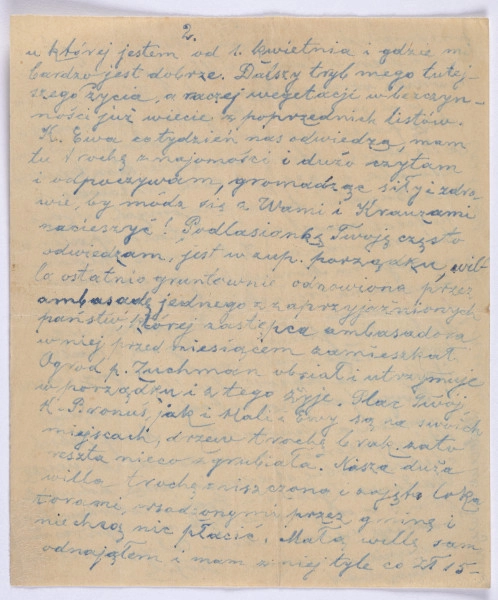 2.
u której jestem od 1. kwietnia i gdzie mi
bardzo jest dobrze. Dalszy tryb mego tutej-
szego życia, a raczej wegetacji w bezczyn-
ności już wiecie z poprzednich listów.
K. Ewa co tydzień nas odwiedza, mam
tu trochę znajomości i dużo czytam
i odpoczywam, gromadząc siły i zdro-
wie, by módz się z Wami i Krauzami
nacieszyć! Podlasiankę Twoją często
odwiedzam, jest w zup. porządku, wil-
la ostatnio gruntownie odnowiona przez
ambasadę jednego z zaprzyjaźnionych
państw, której zastępca ambasadora
w niej przed miesiącem zamieszkał.
Ogród p. Zuchman obsiał i utrzymuje
w porządku i z tego żyje. Plac Twój
K. Bronuś, jak i Hali i Ewy są na swoich
miejscach, drzew trochę brak, zato
reszta nieco zgrubiała. Nasza duża
willa trochę zniszczona i zajęta loka
torami, wsadzonymi przez gminę i
nie chcą nic płacić. Małą willę sam
odnająłem i mam z niej tyle co Zł 15-